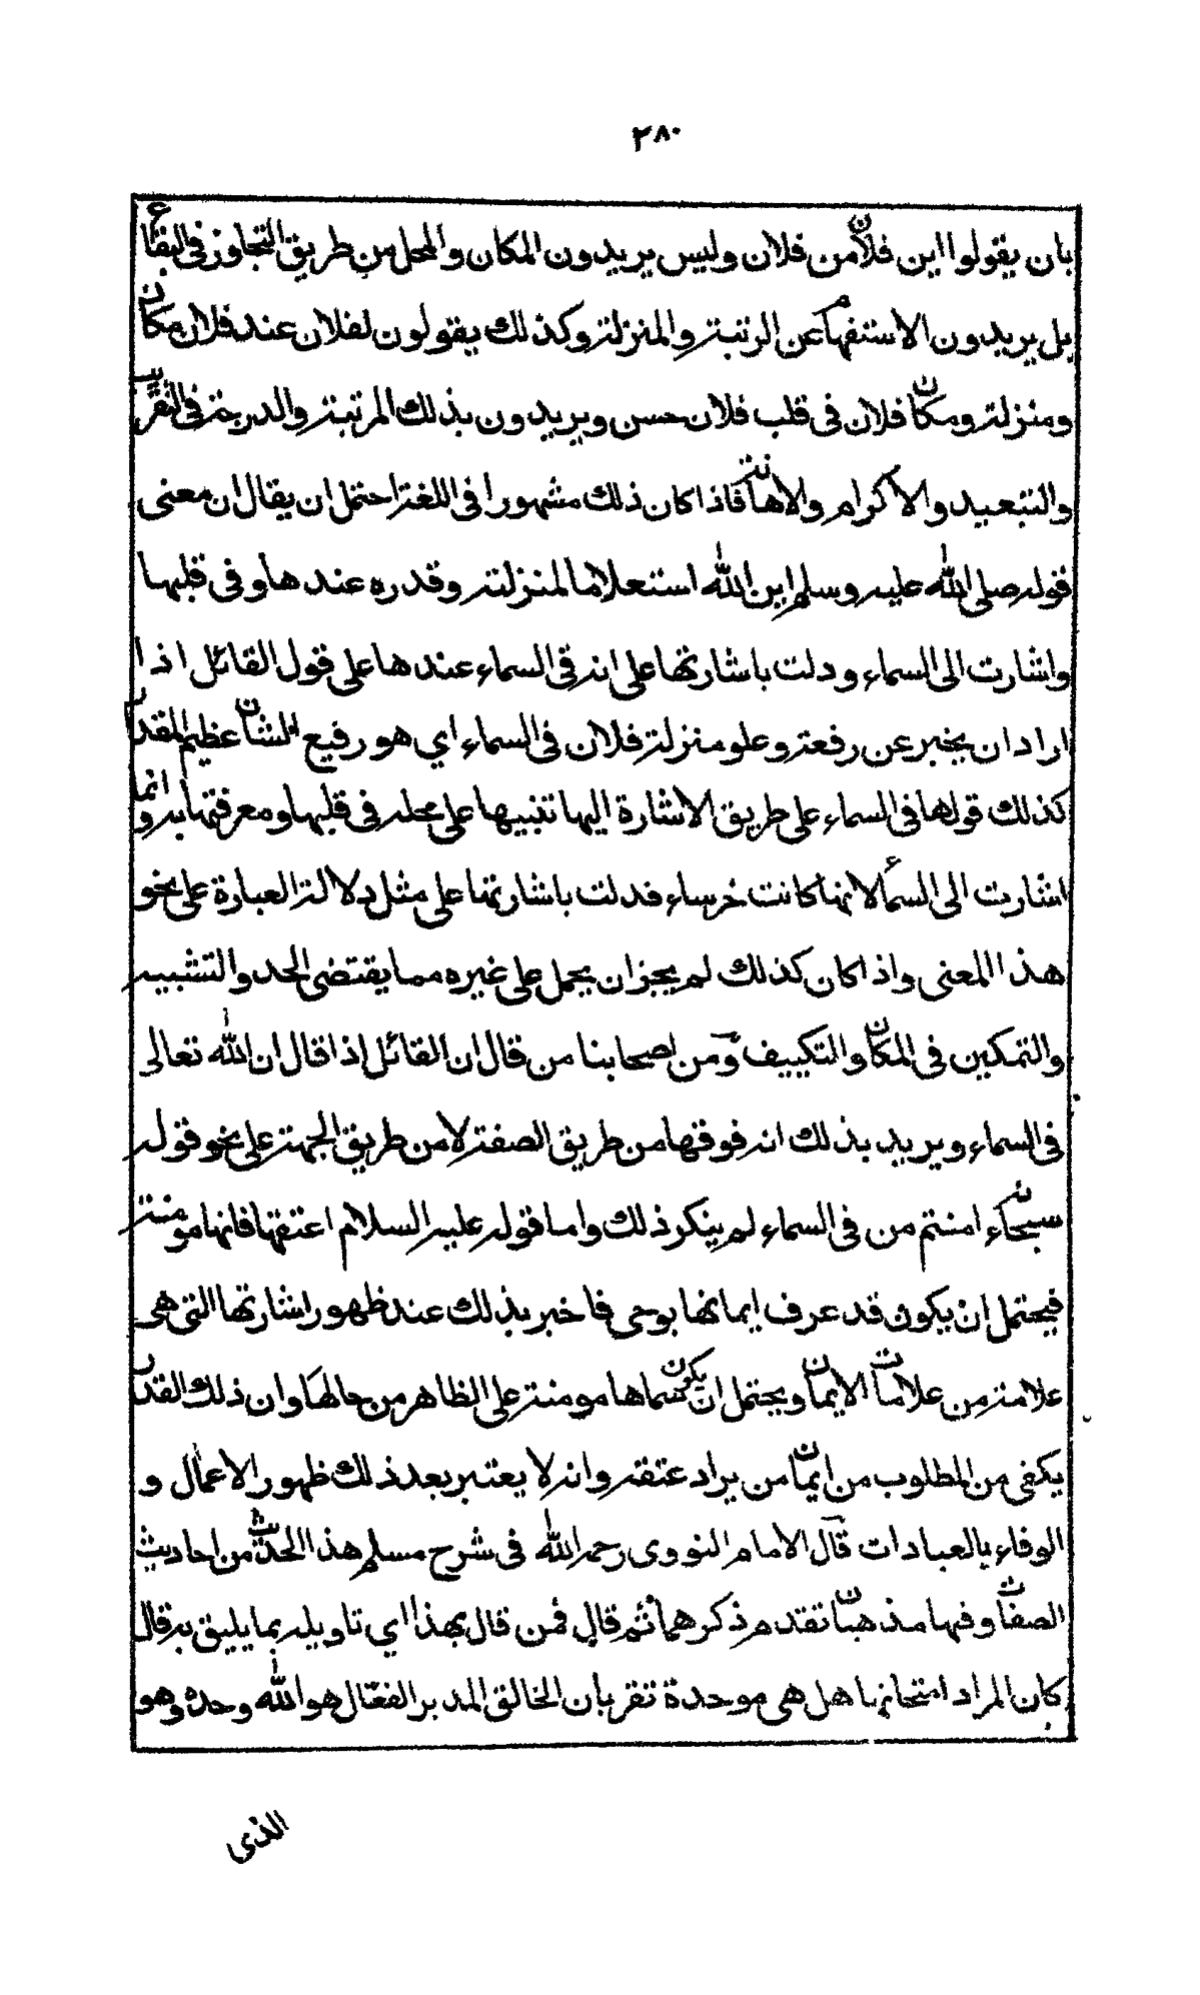 ٢٨٠
بان يقولوا اين فلان من فلان وليس يريدون المكان والمحل من طريق التجاوز في البقاء
بل يريدون الاستفهام عن الرتبة والمنزلة وكذلك يقولون لفلان عند فلان مكان
ومنزلة ومكان فلان في قلب فلان حسن ويريدون بذلك المرتبة والدرجة في التقريب
والتبعيد والاكرام والاهانة فاذا كان ذلك مشهورا في اللغة احتمل ان يقال ان معنى
قوله صلى الله عليه وسلم اين الله استعلاما لمنزلته وقدره عندها وفي قلبها
واشارت الى السماء ودلت باشارتها على انه في السماء عندها على قول القائل اذا
اراد ان يخبر عن رفعة وعلو منزلة فلان في السماء اي هو رفيع الشان عظيم المقدار
كذلك قولها في السماء على طريق الاشارة اليها تنبيها على محله في قلبها ومعرفتها به وانما
اشارت الى السماء لانها كانت خرساء فدلت باشارتها على مثل دلالة العبارة على نحو
هذا المعنى واذا كان كذلك لم يجز ان يحمل على غيره مما يقتضي الحد والتشبيه
والتمكين في المكان والتكييف ومن اصحابنا من قال ان القائل اذا قال ان الله تعالى
في السماء ويريد بذلك انه فوقها من طريق الصفة لا من طريق الجهة على نحو قوله
سبحانه ءامنتم من في السماء لم ينكر ذلك واما قوله عليه السلام اعتقها فانها مومنة
فيحتمل ان يكون قد عرف ايمانها بوحى فاخبر بذلك عند ظهور اشارتها التى هي
علامة من علامات الايمان ويحتمل ان يكون سماها مومنة على الظاهر من حالها وان ذلك القدر
يكفى من المطلوب من ايمان من يراد عتقه وانه لا يعتبر بعد ذلك ظهور الاعمال و
الوفاء بالعبادات قال الامام النووى رحمه الله في شرح مسلم هذا الحديث من احاديث
الصفات وفيها مذهبان تقدم ذكرهما ثم قال فمن قال بهذا اي تاويله بما يليق به قال
كان المراد امتحانها هل هي موحدة تقر بان الخالق المدبر الفعال هو الله وحده وهو
الذى